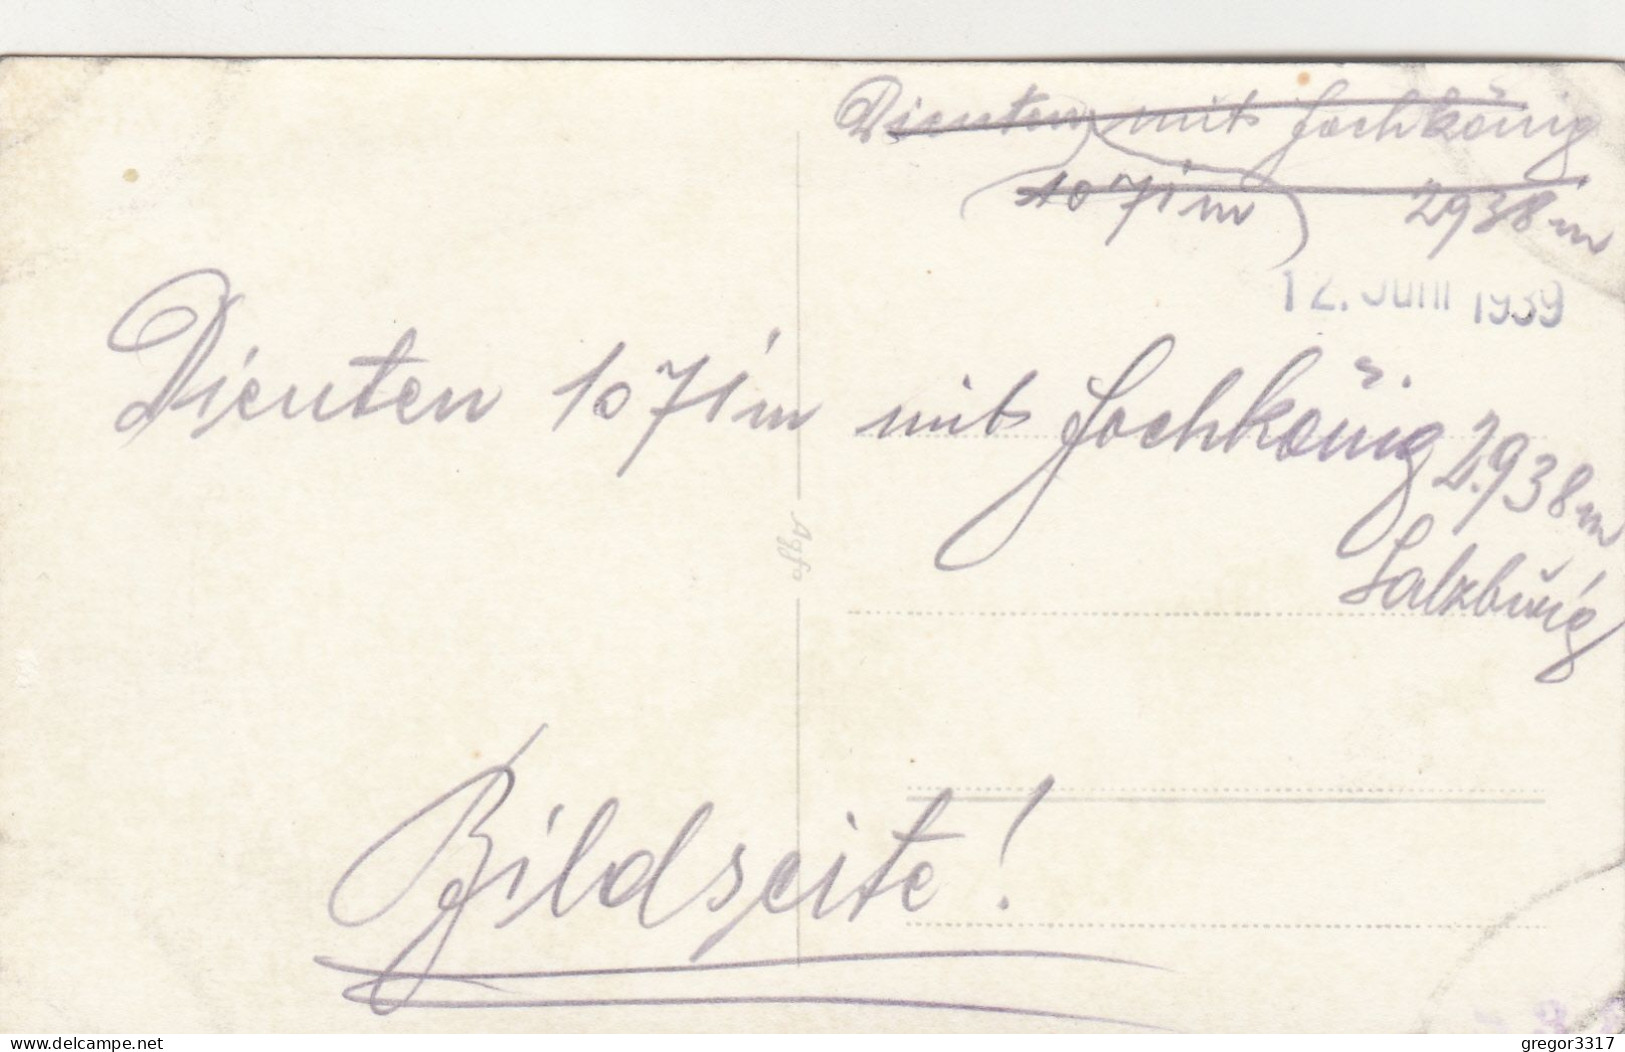 Dienten mit Hochkönig
1071 m 2938 m
12. Juni 1939
Dienten 1071 m mit Hochkönig 2938 m
Salzburg
Agfa
Bildseite!
delcampe.net
gregor3317